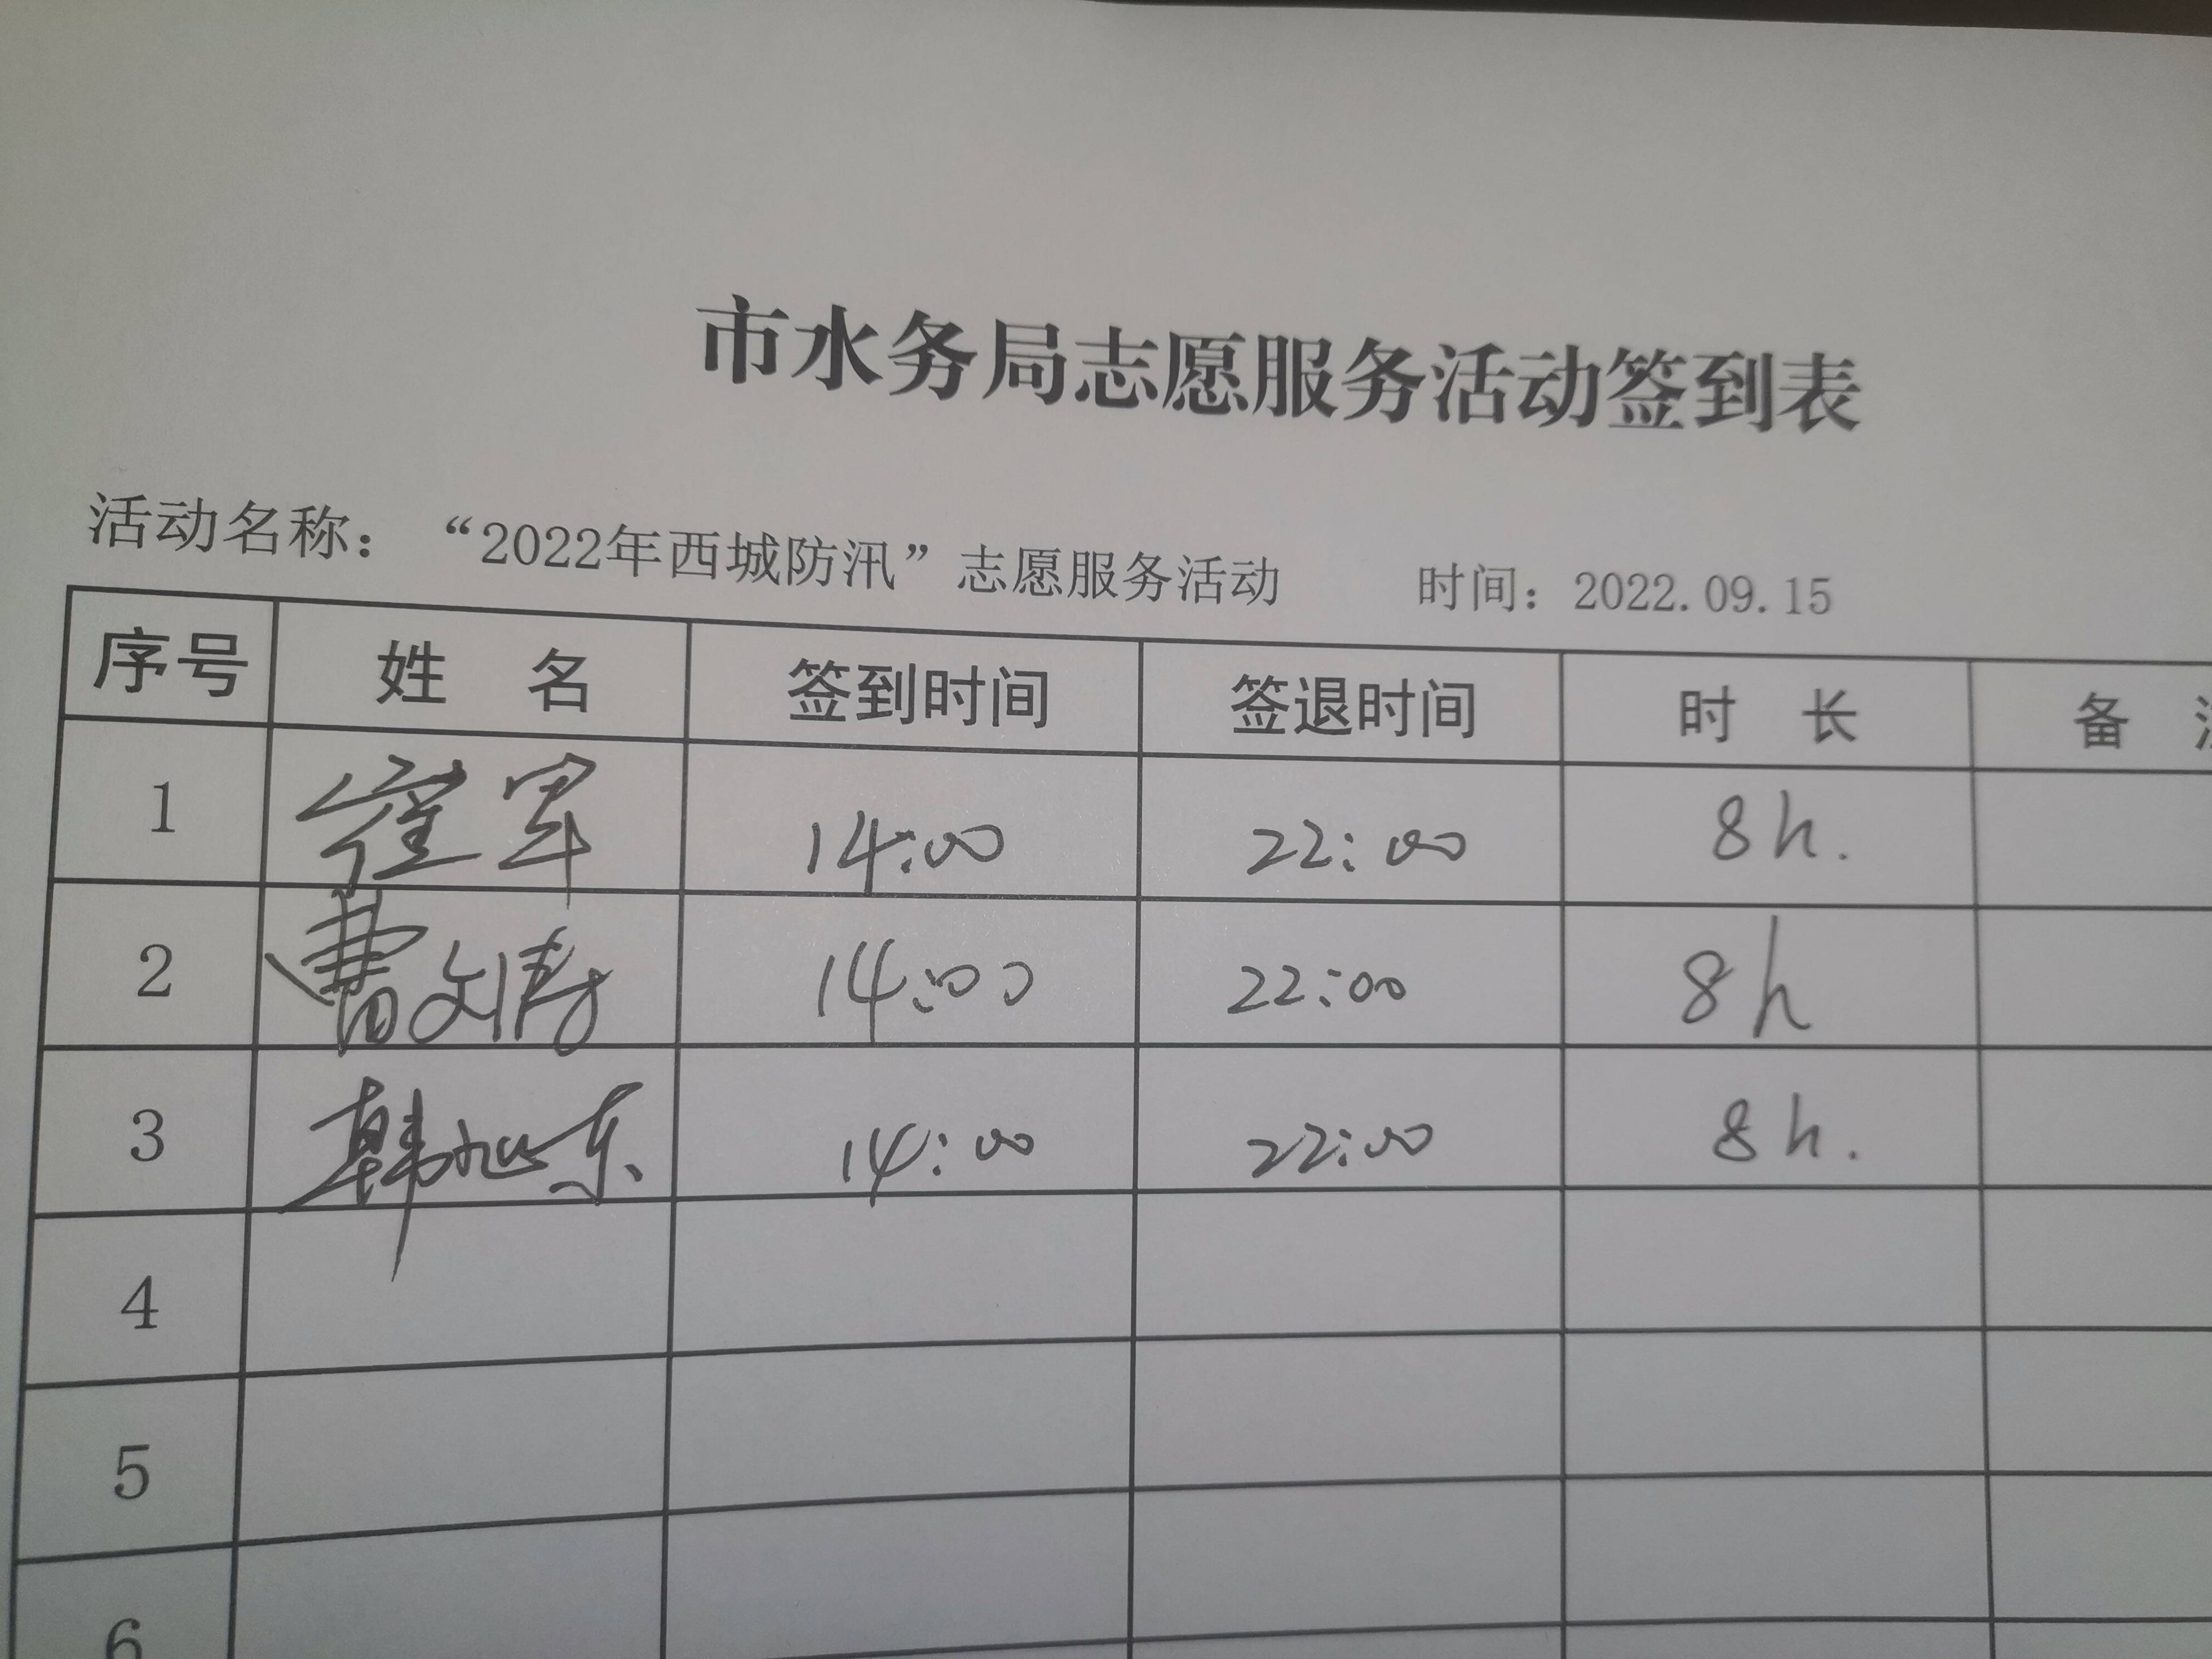 市水务局志愿服务活动签到表
活动名称：“2022年西城防汛”志愿服务活动 时间：2022.09.15
序号 姓名 签到时间 签退时间 时长 备
1 崔军 14:00 22:00 8h.
2 曹文涛 14:00 22:00 8h
3 韩旭东 14:00 22:00 8h.
4
5
6